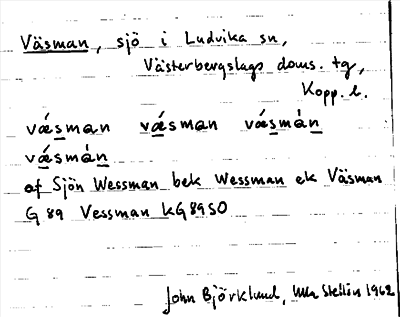 Väsman, sjö i Ludvika sn,
Västerbergslags doms. tg,
Kopp. l.
vǽsman vǽsman vǽsmàn
vǽsmàn
af Sjön Wessman bek Wessman ek Väsman
G 89 Vessman kG89SO
John Björklund, 1962